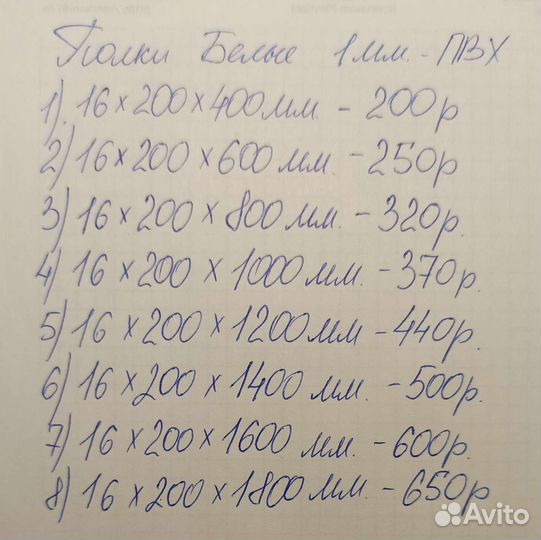 Полки Белые 1мм. - ПВХ
1). 16 × 200 × 400 мм. - 200р
2) 16 × 200 × 600 мм. - 250р
3) 16 × 200 × 800 мм. - 320р.
4) 16 × 200 × 1000 мм. - 370р.
5) 16 × 200 × 1200 мм - 440р.
6) 16 × 200 × 1400 мм. - 500р.
7) 16 × 200 × 1600 мм. - 600р.
8) 16 × 200 × 1800 мм. - 650р
Avito